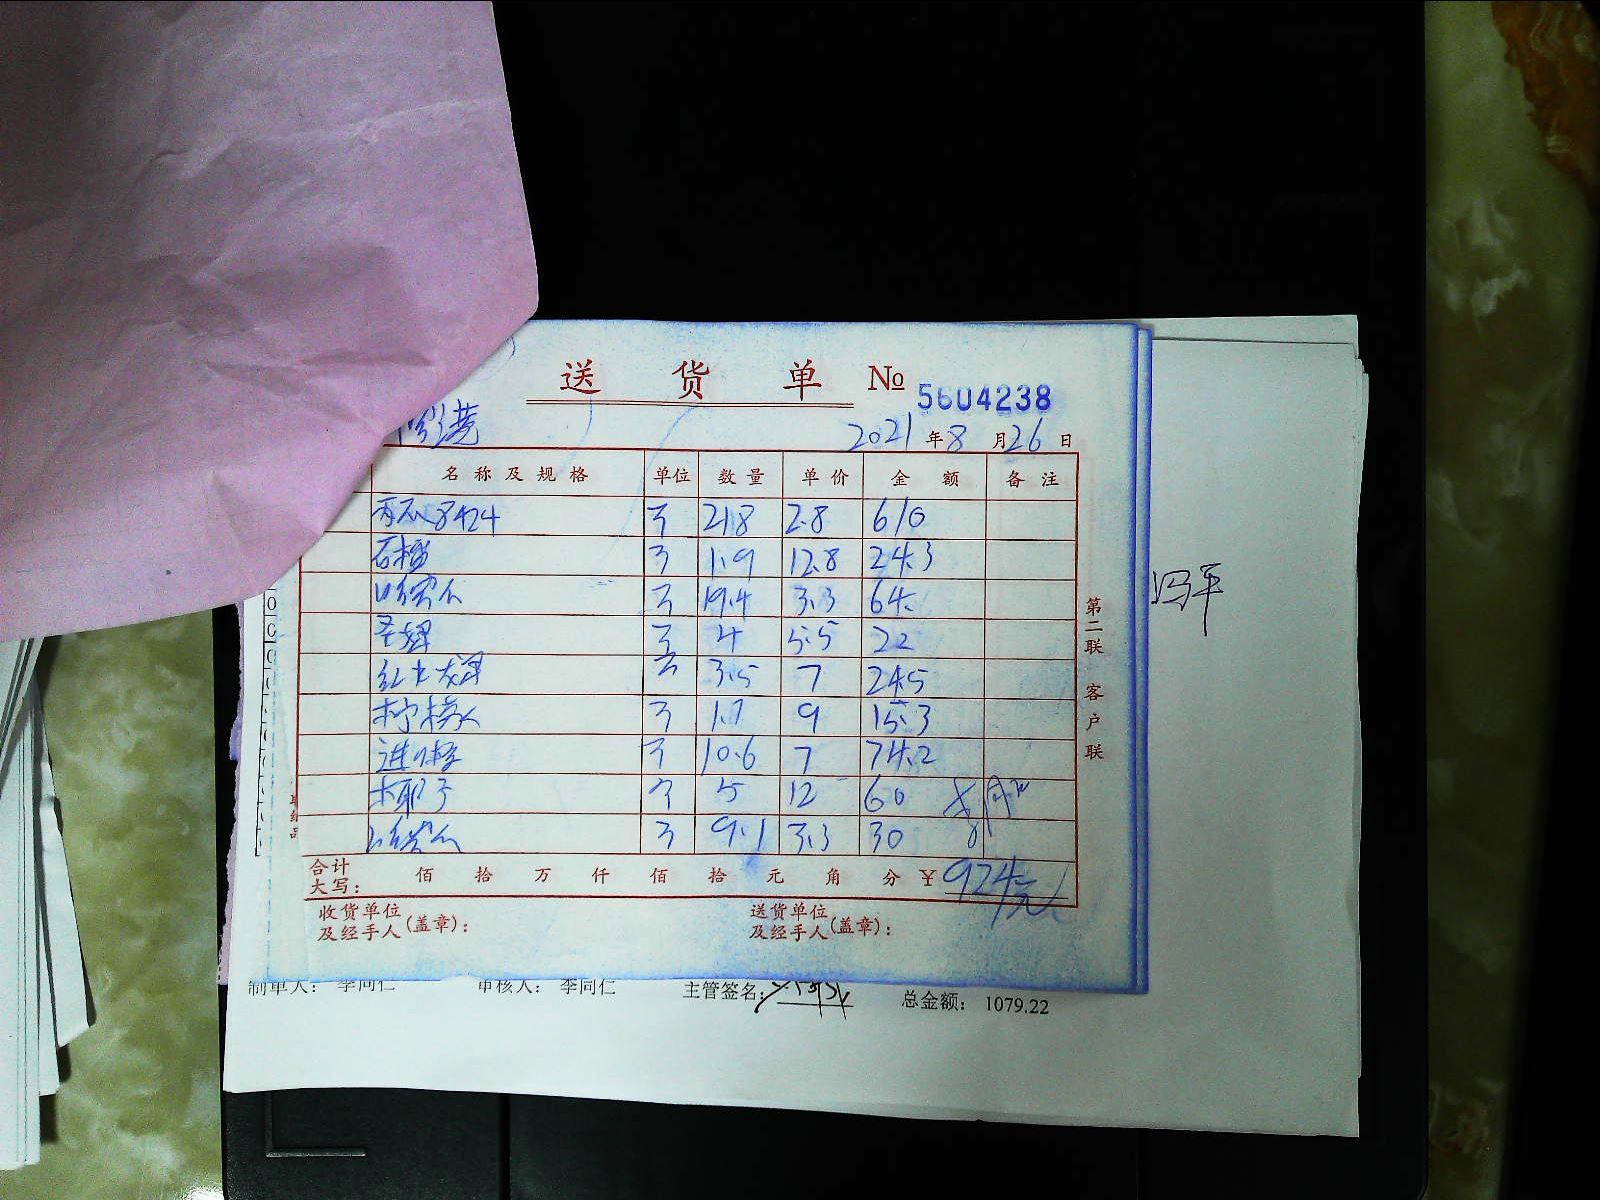 送 货 单 № 5604238
2021 年 8 月 26 日
名称及规格 单位 数量 单价 金额 备注
西瓜8424 斤 218 2.8 610
石榴 斤 1.9 12.8 24.3
哈密瓜 斤 19.4 3.3 64.
圣女果 斤 4 5.5 22
红火龙果 斤 3.5 7 24.5
柠檬 斤 1.7 9 15.3
进口橙 斤 10.6 7 74.2
木椰子 个 5 12 60
哈密瓜 斤 9.1 3.3 30
合计
大写： 佰 拾 万 仟 佰 拾 元 角 分 ￥924元
收货单位
及经手人(盖章)：
送货单位
及经手人(盖章)：
第二联 客户联
冯平
制单人： 李同仁 审核人： 李同仁 主管签名： 总金额： 1079.22